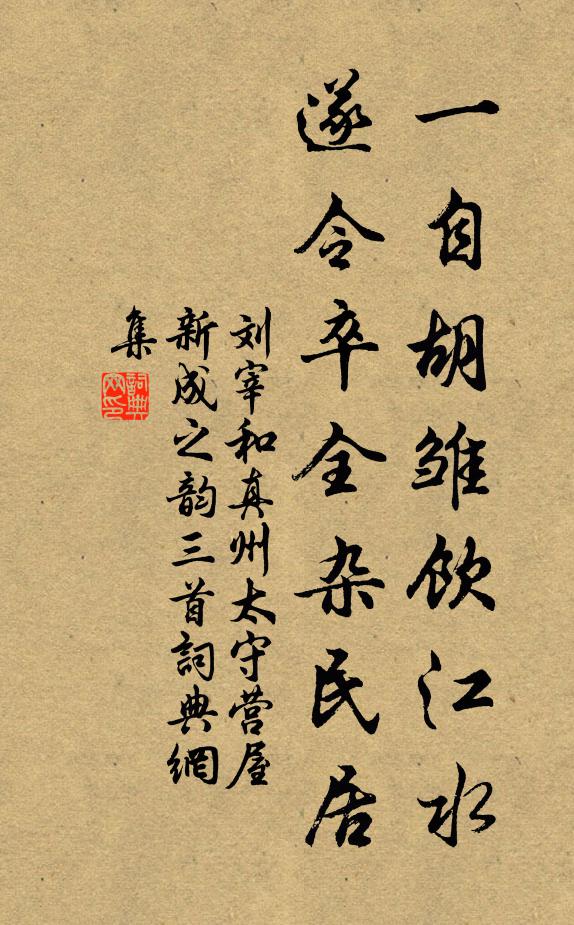 一自胡雏饮江水
遂令卒全杂民居
刘宰和真州太守营屋
新成之韵三首詞典網
集
詞典
网印